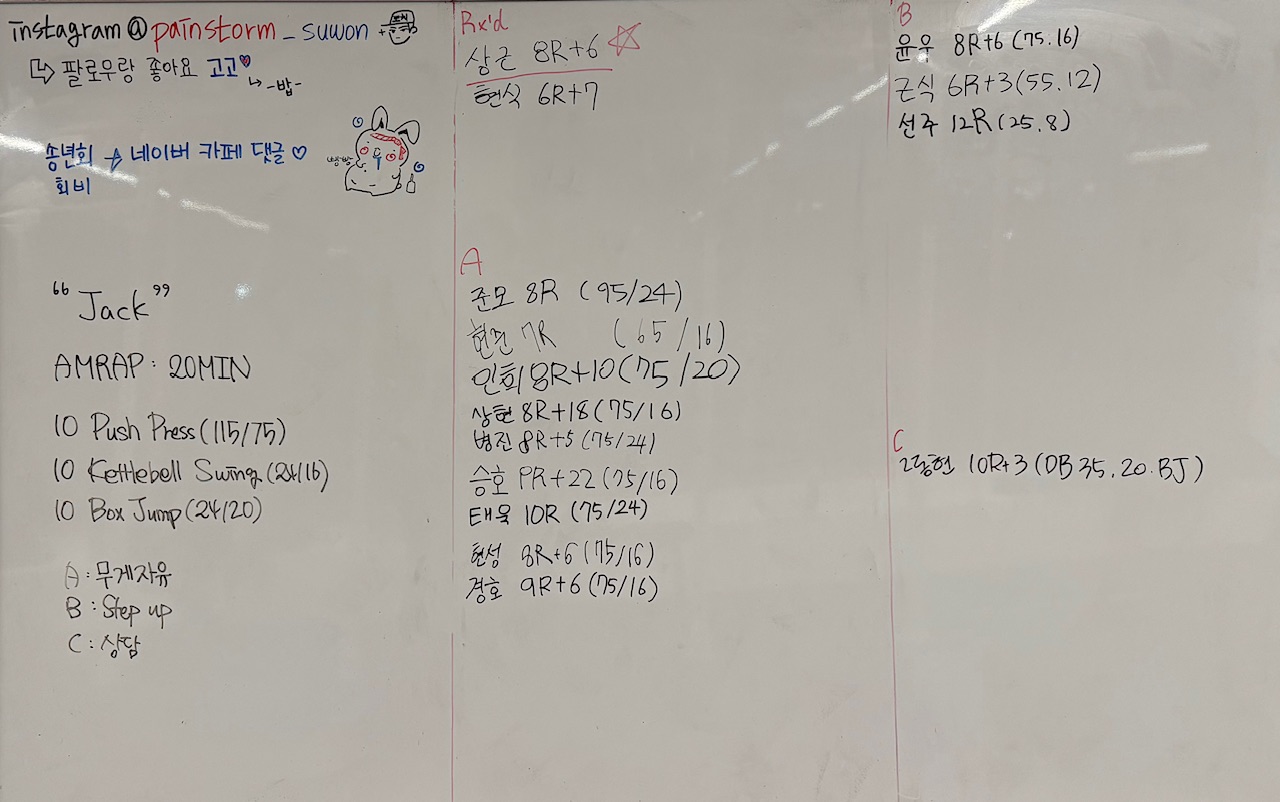 instagram@painstorm_suwon
팔로우랑 좋아요 고고♥
-밥-
송년회 → 네이버 카페 댓글 ♡
회비
빵빵
"Jack"
AMRAP : 20MIN
10 Push Press (115/75)
10 Kettlebell Swing (24/16)
10 Box Jump (24/20)
A : 무게자유
B : Step up
C : 상담
Rx'd
상근 8R+6 ☆
현식 6R+7
A
준모 8R (95/24)
7R (65/16)
인희 8R+10 (75/20)
상현 8R+18 (75/16)
병진 8R+5 (75/24)
승호 9R+22 (75/16)
태욱 10R (75/24)
현성 8R+6 (75/16)
경호 9R+6 (75/16)
B
윤우 8R+6 (75.16)
근식 6R+3 (55.12)
선주 12R (25.8)
C
10R+3 (DB 35. 20. BJ)